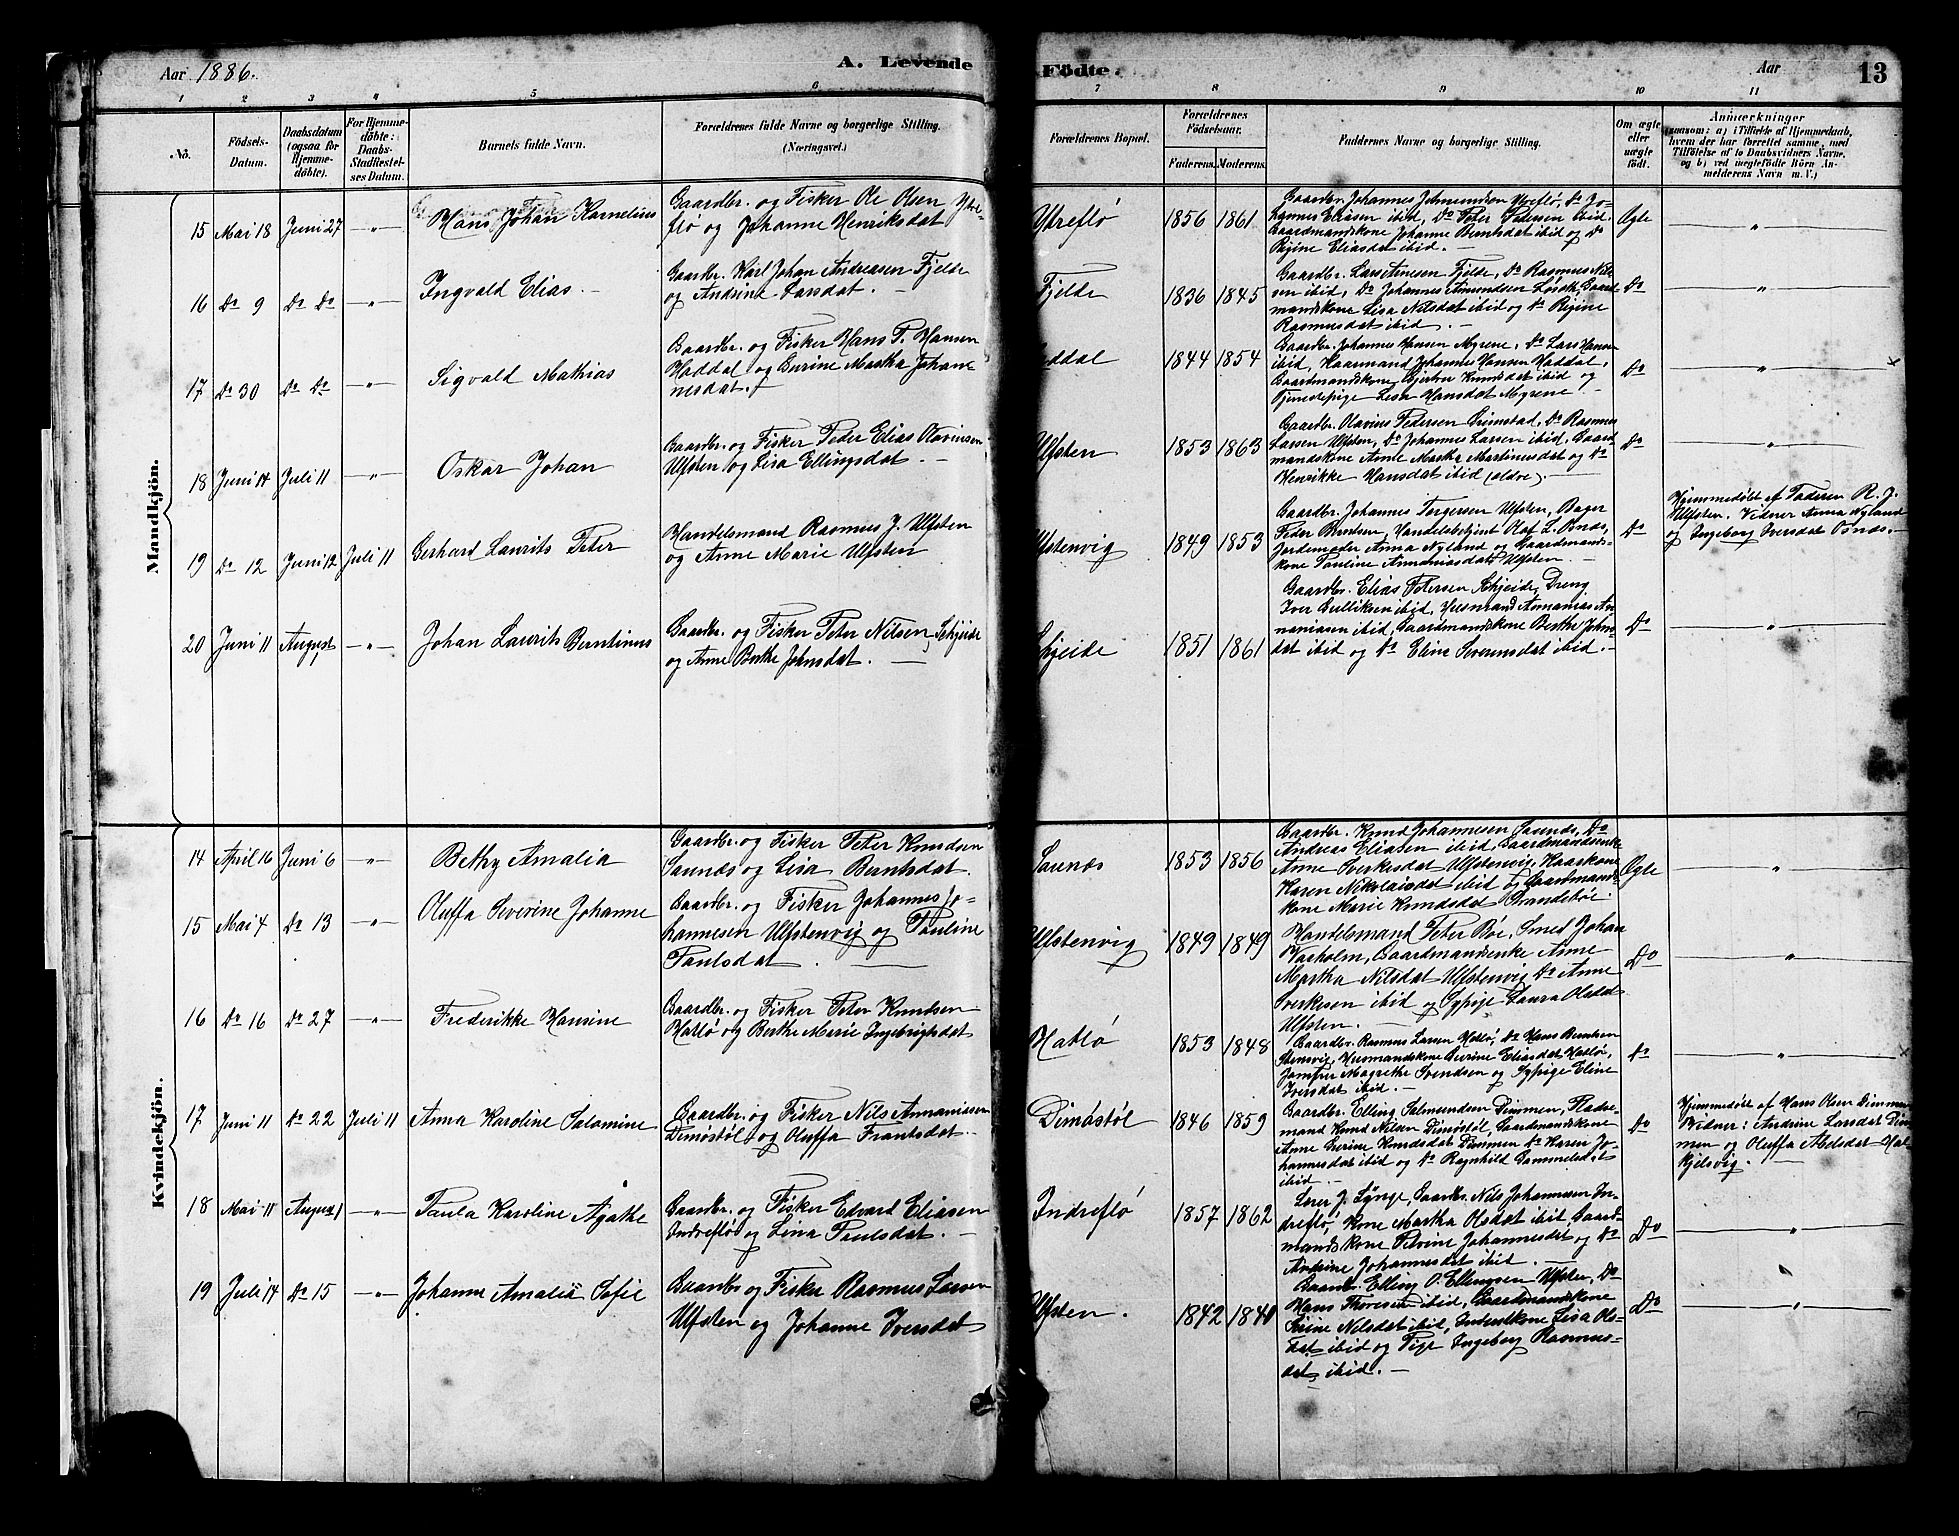 Aar 1886.
A. Levende
Födte.
Aar
13
1 2 3 4 5 6 7 8 9 10 11
No.
Födsels-
Datum.
Daabsdatum
(ogsaa for
Hjemme-
döbte).
For Hjemme-
döbte:
Daabs-
Stadfæstel-
ses Datum.
Barnets fulde Navn.
Forældrenes fulde Navne og borgerlige Stilling.
(Næringsvei.)
Forældrenes Bopæl.
Forældrenes
Födselsaar.
Faderens. Moderens.
Faddernes Navne og borgerlige Stilling.
Om ægte
eller
uægte
födt.
Anmærkninger
saasom: a) i Tilfælde af Hjemmedaab,
hvem der har forrettet samme, med
Tilföielse af to Daabsvidners Navne,
og b) ved uægtefödte Börn An-
melderens Navn m. V.)
Mandkjön.
15 Mai 18 Juni 27 — " — Hans Johan Kornelius
Gaardbr. og Fisker Ole Olsen Ytre-
flö og Johanne Henriksdat
Ytreflö 1856 1861
Gaardbr. Johannes Johnsen Ytreflö, Do Jo-
hannes Eliasen ibid, Do Peter Pedersen ibid.
Gaardmandskone Johanne Berntsdat ibid og Do
Regine Eliasdat ibid. —
Ægte — " —
16 Do 9 Do Do — " — Ingvald Elias. —
Gaardbr. Karl Johan Andreasen Fjelde
og Andrine Larsdat. —
Fjelde 1836 1845
Gaardbr. Lars Arnesen Fjelde, Do Rasmus Nil-
sen ibid, Do Johannes Amundsen Löset, Gaard-
mandskone Lisa Nilsdat ibid og Do Regine
Rasmusdat ibid. —
Do — " —
17 Do 30 Do Do — " — Sigvald Mathias
Gaardbr. og Fisker Hans P. Hansen
Haddal og Gurine Martha Johan-
nesdat. —
Haddal 1844 1854
Gaardbr. Johannes Hansen Myrene, Do Lars Hansen
ibid, Kaarmand Johannes Hansen Haddal,
Gaardmandskone Gjertru Knudsdat ibid og
Tjenestepige Lisa Hansdat Myrene. —
Do — " —
18 Juni 14 Juli 11 — " — Oskar Johan
Gaardbr. og Fisker Peder Elias Olavinsen
Ulfsten og Lisa Ellingsdat. —
Ulfsten 1853 1863
Gaardbr. Olavius Pedersen Grimstad, Do Rasmus
Larsen Ulfsten, Do Johannes Larsen ibid, Gaard-
mandskone Anne Martha Martinusdat og Do
Henrikke Hansdat ibid (eldre). —
Do — " —
19 Do 12 Juni 12 Juli 11 Gerhard Laurits Peter
Handelsmand Rasmus J. Ulfsten
og Anne Marie Ulfsten
Ulfstenvig 1849 1853
Gaardbr. Johannes Torgersen Ulfsten, Bager
Peder Berntsen, Handelsbetjent Olaf L. Osnæs,
Jordemoder Anna Nyland og Gaardmands-
kone Pauline Annaniasdat Ulfsten. —
Do
Hjemmedöbt af Faderen R. J.
Ulfsten. Vidner Anna Nyland
og Ingeborg Iversdat Osnæs. —
20 Juni 11 August 1 — " — Johan Laurits Berntinus
Gaardbr. og Fisker Peter Nilsen Skjeide
og Anne Berthe Johnsdat. —
Skjeide 1851 1861
Gaardbr. Elias Petersen Skjeide, Dreng
Iver Gulliksen ibid, Husmand Annanias An-
naniasen ibid, Gaardmandskone Berthe Johns-
dat ibid og Do Eline Severinsdat ibid. —
Do — " —
Kvindekjön.
14 April 16 Juni 6 — " — Bethy Amalia
Gaardbr. og Fisker Peter Knudsen
Saunæs og Lisa Berntsdat.
Saunæs 1853 1856
Gaardbr. Knud Johannesen Saunæs, Do
Andreas Eliasen ibid, Gaardmandsenke
Anne Sverkesdat Ulfstenvig, Kaarkone
Karen Nikolaisdat ibid og Gaardmands-
kone Marie Knudsdat Strandebö. —
Ægte — " —
15 Mai 4 Do 13 — " — Oluffa Severine Johanne
Gaardbr. og Fisker Johannes Jo-
hannesen Ulfstenvig og Pauline
Paulsdat. —
Ulfstenvig 1849 1849
Handelsmand Peter Böe, Smed Johan
Varholm, Gaardmandsenke Anne
Martha Nilsdat Ulfstenvig Do Anne
Sverkesen ibid og Sypige Laura Olsdat
Ulfsten. —
Do — " —
16 Do 16 Do 27 — " — Frederikke Hansine
Gaardbr. og Fisker Peter Knudsen
Hatlö og Berthe Marie Ingebrigtsdat
Hatlö 1853 1848
Gaardbr. Rasmus Larsen Hatlö, Do Hans Berntsen
Stensvig, Husmandskone Gurine Eliasdat Hatlöe,
Jomfru Magrethe Svendsen og Sypige Eline
Iversdat ibid. —
Do — " —
17 Juni 11 Do 22 Juli 11 Anna Karoline Salamine
Gaardbr. og Fisker Nils Annaniassen
Dimöstöl og Oluffa Frantsdat. —
Dimöstöl 1846 1859
Gaardbr. Elling Salmundsen Dimmen, Fladre-
mand Knud Nilsen Dimöstöl, Gaardmandskone
Anne Gurine Knudsdat Dimmen Do Karen Jo-
hannesdat ibid og Do Ragnhild Sammelsdat
ibid. —
Do
Hjemmedöbt af Hans Olsen Dimmen
Vidner: Andrine Larsdat Dim-
men og Oluffa Abelsdat Hat-
kjelsvig. —
18 Mai 11 August 1 — " — Paula Karoline Agathe
Gaardbr. og Fisker Edvard Eliasen
Indreflö og Lina Paulsdat. —
Indreflö 1857 1862
Lærer J. Lynge, Gaardbr. Nils Johannesen In-
dreflö, Kone Martha Olsdat ibid, Gaard-
mandskone Petrine Johannesdat og Do
Andrine Johannesdat ibid.
Do — " —
19 Juli 14 Do 15 — " — Johanne Amalia Sofie
Gaardbr og Fisker Rasmus Larsen
Ulfsten og Johanne Iversdat
Ulfsten. 1842 1840
Gaardbr. Elling O. Ellingsen Ulfsten, Do
Hans Thoresen ibid, Gaardmandskone
Sirine Nilsdat ibid, Inderstkone Lisa Ols-
dat ibid og Pige Ingeborg Rasmus-
dat, ibid. —
Do — " —